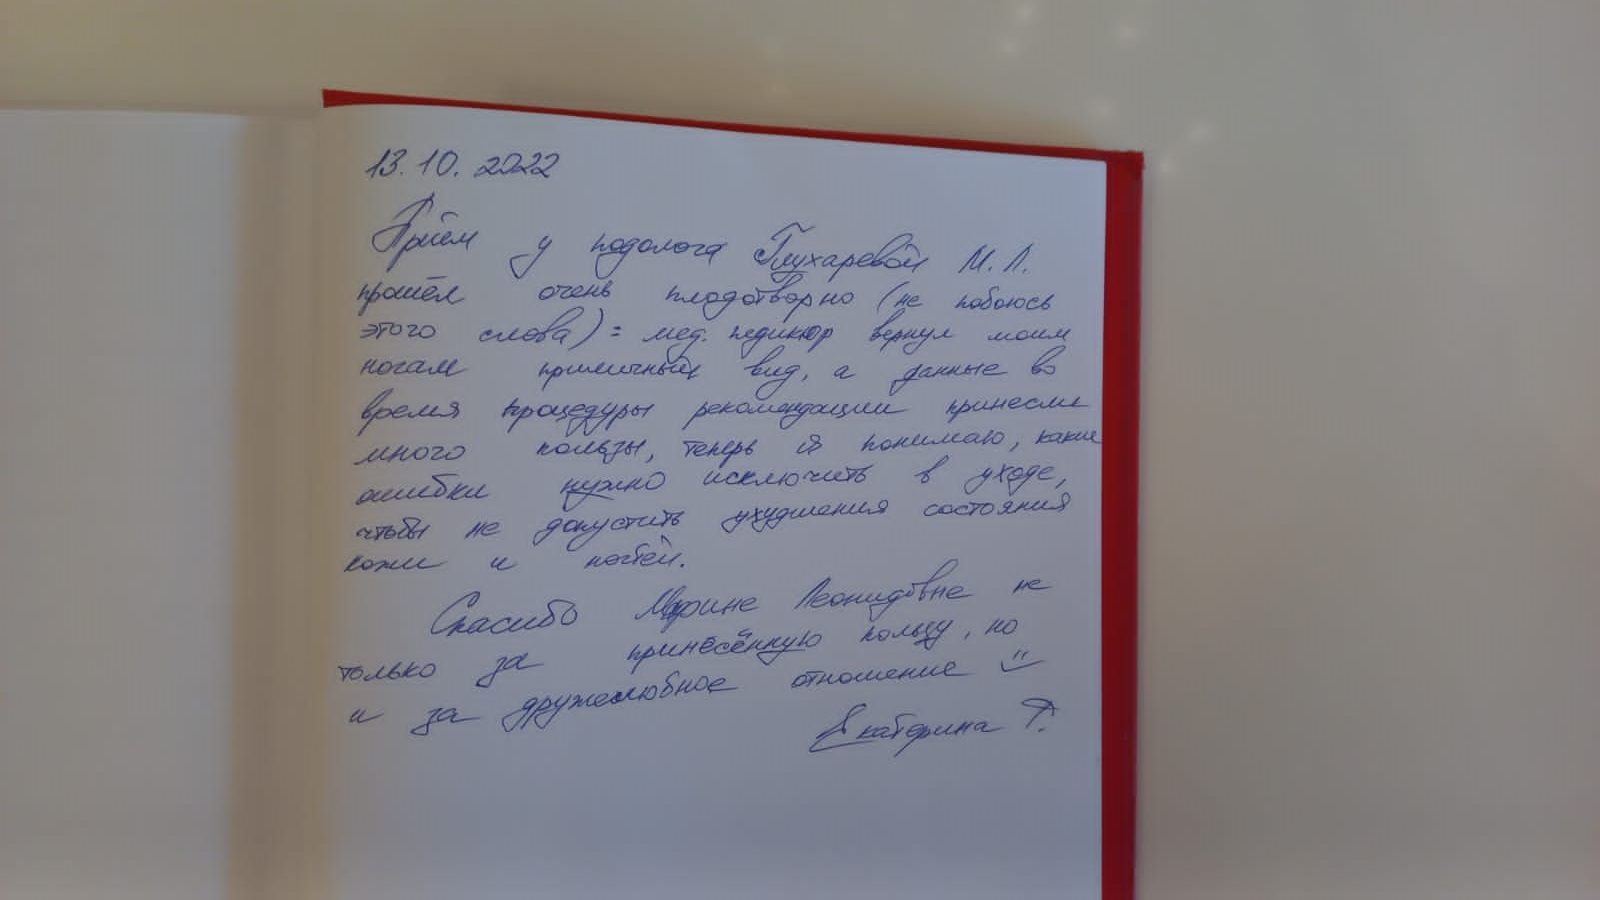 13.10.2022
Приём у подолога Глухаревой М.Л.
прошёл очень плодотворно (не побоюсь
этого слова): мед. педикюр вернул моим
ногам приличный вид, а данные во
время процедуры рекомендации принесли
много пользы, теперь я понимаю, какие
ошибки нужно исключить в уходе,
чтобы не допустить ухудшения состояния
кожи и ногтей.
Спасибо Марине Леонидовне не
только за принесённую пользу, но
и за дружелюбное отношение
Екатерина Р.